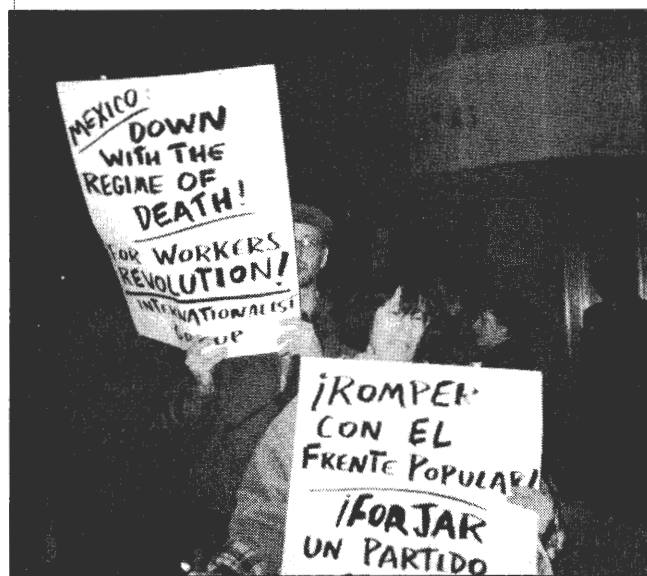 MEXICO:
DOWN
WITH THE
REGIME OF
DEATH!
FOR WORKERS
REVOLUTION!
INTERNATIONALIST
GROUP
¡ROMPER
CON EL
FRENTE POPULAR!
¡FORJAR
UN PARTIDO